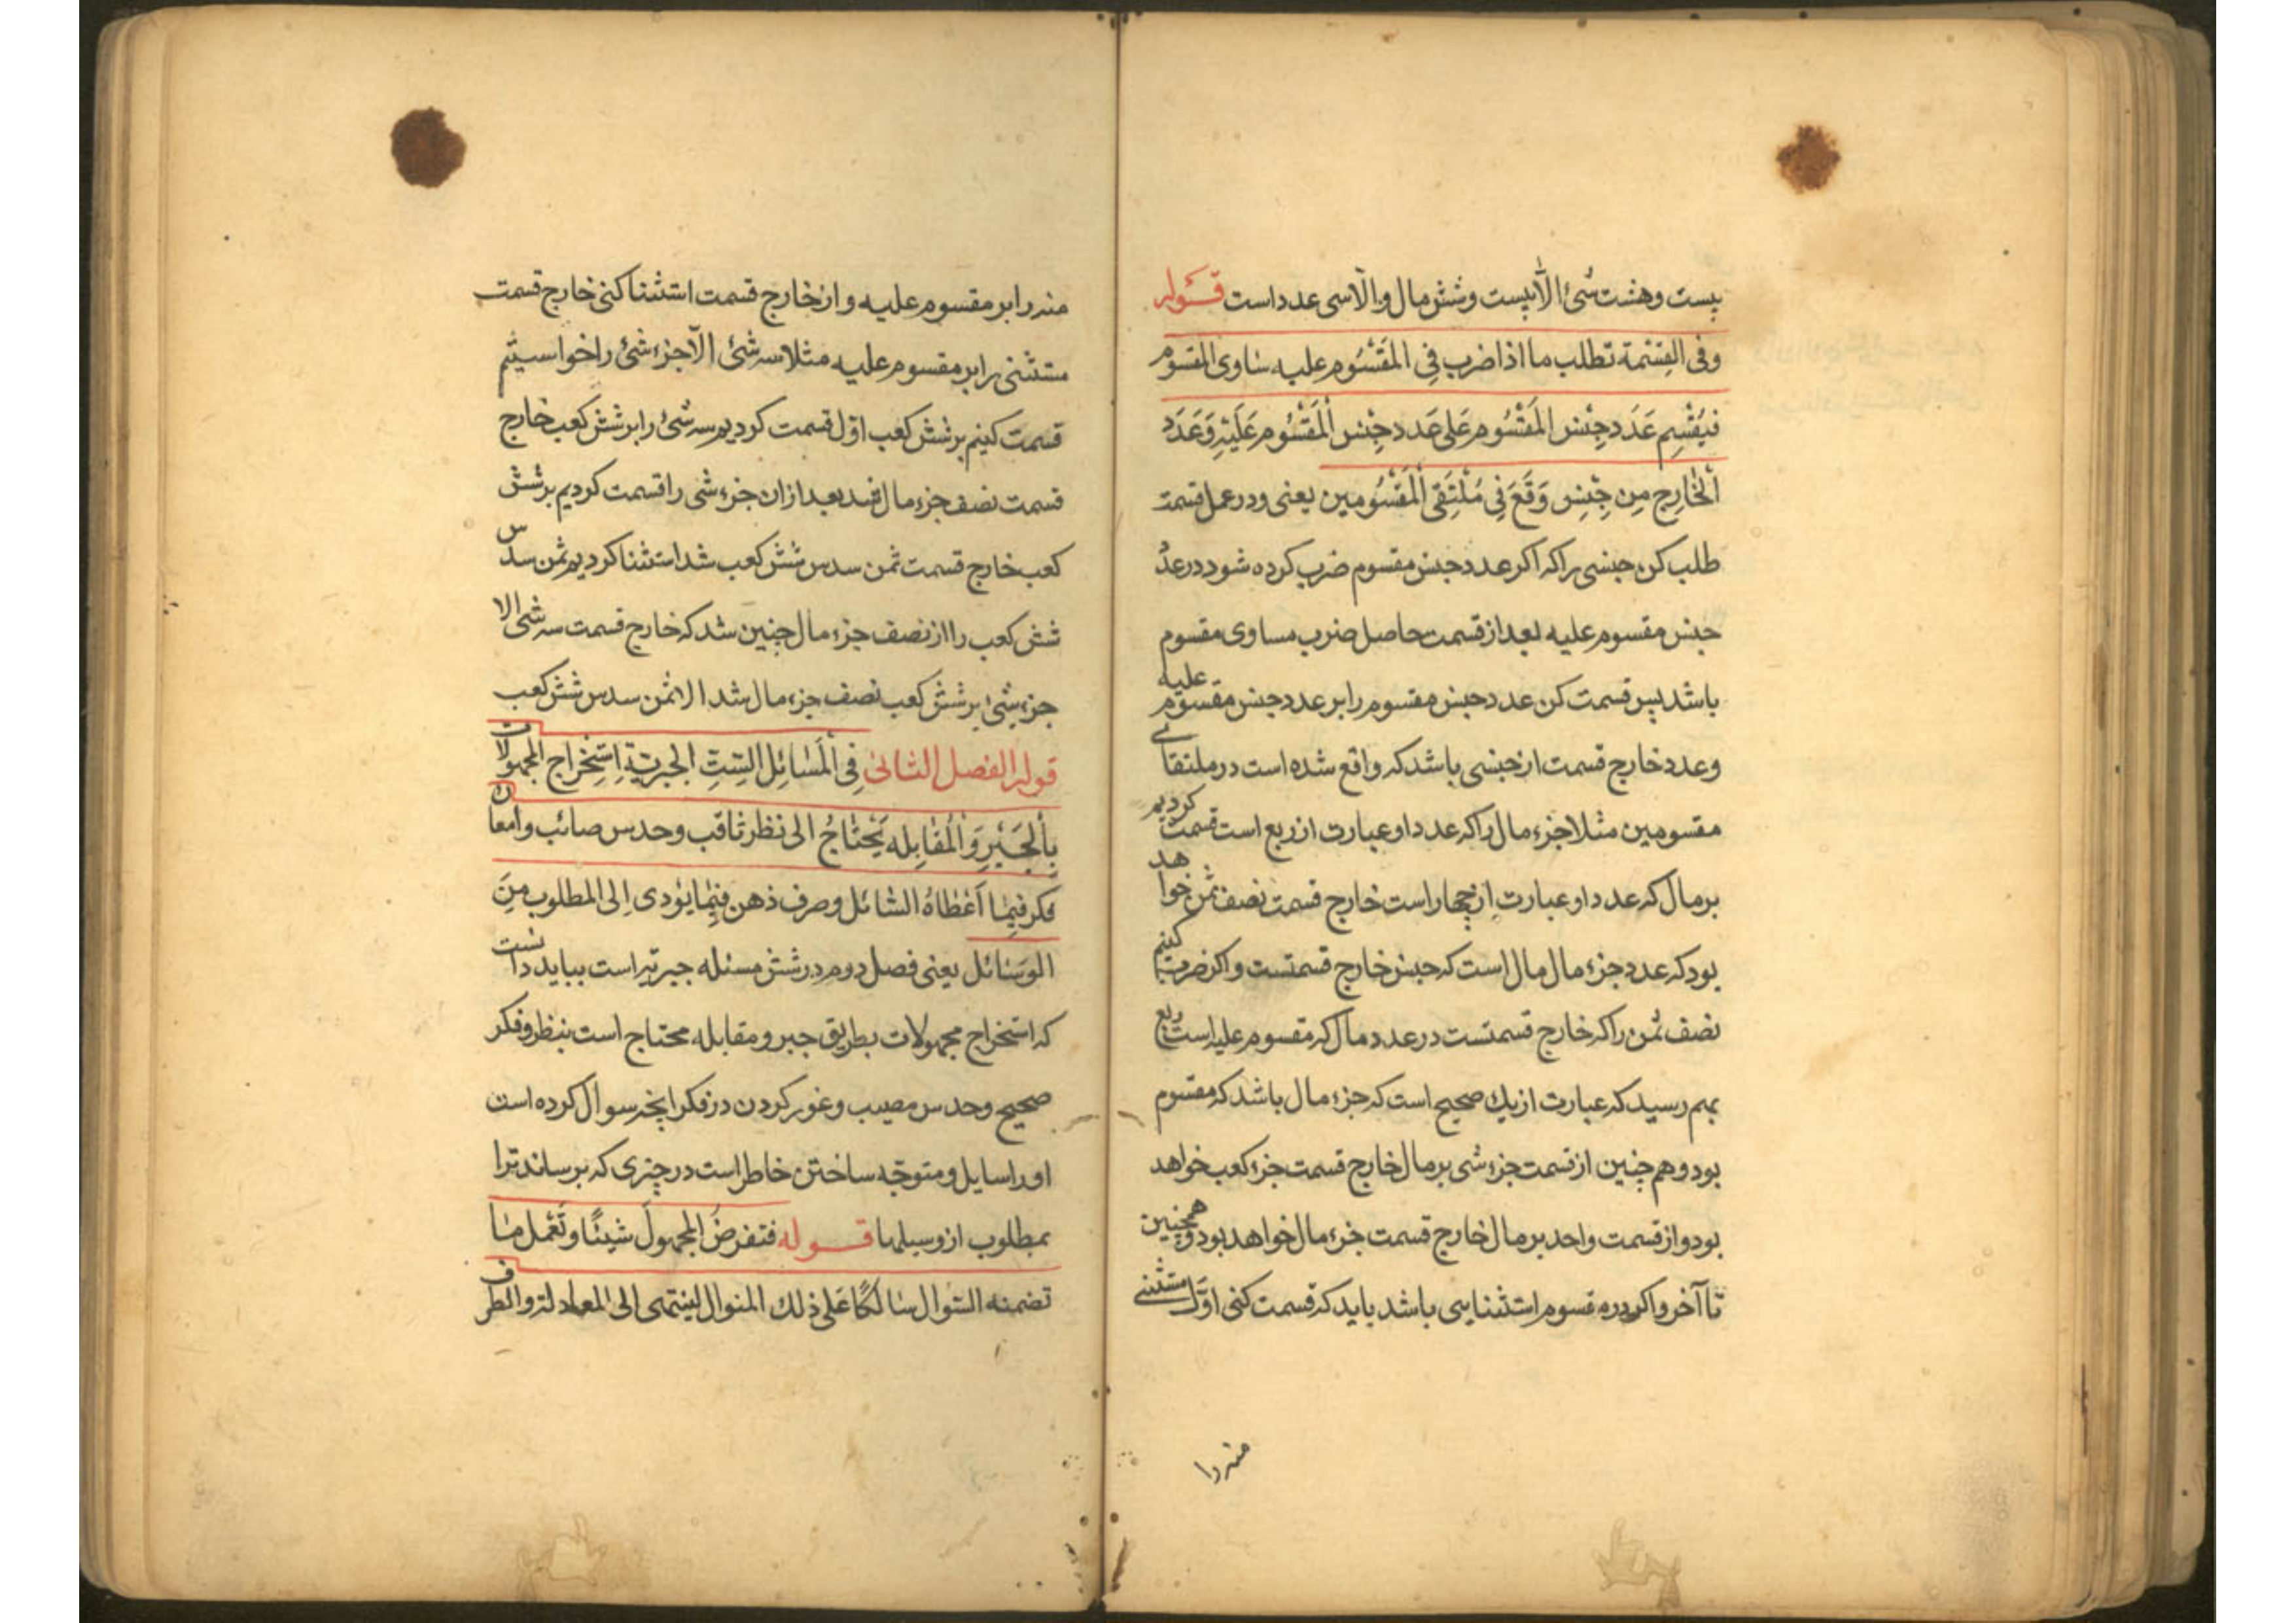 بیست وهشت شئ الّا بیست وشش مال والّا سی عدد است قوله
وفی القِسْمة تطلب ما اذا ضرب فِی المَقْسُوم علیه ساوی المقسوم
فیُقْسِم عَدَد جِنْس المَقْسُوم عَلی عَدد جِنْس المَقْسُوم عَلَیْهِ وَعَدَد
الْخارِج مِن جِنِس وَقَعَ فِی مُلْتَقَی المَقْسُومین یعنی ودر عمل قسمت
طلب کن جنسی را که اکر عدد جنس مقسوم ضرب کرده شود در عدد
جنس مقسوم علیه بعد از قسمت حاصل ضرب مساوی مقسوم
باشد پس قسمت کن عدد جنس مقسوم را بر عدد جنس مقسوم علیه
وعدد خارج قسمت از جنسی باشد که واقع شده است در ملتقای
مقسومین مثلا جزء مال را که عدد او عبارت از ربع است قسمت کردیم
بر مال که عدد او عبارت از چهار است خارج قسمت نصف ثمن خواهد
بود که عدد جزء مال مال است که جنس خارج قسمتست واکر ضرب کنیم
نصف ثمن را که خارج قسمتست در عدد مال که مقسوم علیه است ربع
بهم رسید که عبارت از یك صحیح است که جزء مال باشد که مقسوم
بود وهم چنین از قسمت جزء شی بر مال خارج قسمت جزء کعب خواهد
بود واز قسمت واحد بر مال خارج قسمت جزء مال خواهد بود وهمچنین
تا آخر واکر در مقسوم استثنایی باشد باید که قسمت کنی اوّل مستثنی
منه را
منه را بر مقسوم علیه واز خارج قسمت استثنا کنی خارج قسمت
مستثنی را بر مقسوم علیه مثلا سه شئ الّا جزء شئ را خواستیم
قسمت کنیم بر شش کعب اوّل قسمت کردیم سه شئ را بر شش کعب خارج
قسمت نصف جزء مال شد بعد از ان جزء شی را قسمت کردیم بر شش
کعب خارج قسمت ثمن سدس شش کعب شد استثنا کردیم ثمن سدس
شش کعب را از نصف جزء مال چنین شد که خارج قسمت سه شی الا
جزء شئ بر شش کعب نصف جزء مال شد الا ثمن سدس شش کعب
قوله الفصل الثانی فِی الْمَسَائِل السِتِّ الجبریّة اِسْتِخْراج المجهولات
بِالْجَبْرِ وَالْمُقابِله یَحْتاجُ الی نظر ثاقب وحدس صائب وامعان
فکر فیما اَعْطاهُ السّائل وصرف ذهن فیما یؤدی اِلی المطلوب مِنَ
الوسَائل یعنی فصل دوم در شش مسئله جبریه است بباید دانست
که استخراج مجهولات بطریق جبر ومقابله محتاج است بنظر وفکر
صحیح وحدس مصیب وغور کردن در فکر انچه سوال کرده است
او را سایل ومتوجّه ساختن خاطر است در چیزی که برساند ترا
بمطلوب از وسیلها قوله فتفرضُ المجهولَ شیئًا وتَعْمل ما
تضمنه السّوال سالکًا عَلی ذلك المنوال لینتهی الی المعادلة والطرف